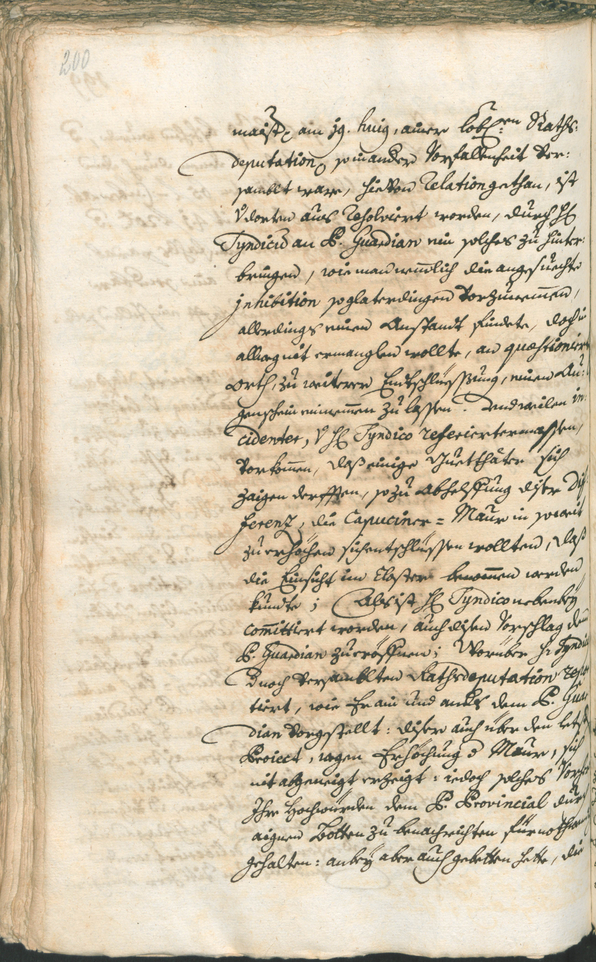 200
maist. am 19. huig, aner lobl:en Raths-
deputation, so in ander Vorfallenheit ver:
samblet ware, hievon relation gethan, ist
v dorten aus resolviert worden, durch H
Syndico an P. Guardian ein solches zu hinter-
bringen, wie man nemmlich die angesuechte
jnhibition poglaterdingen vorzunemmen,
allerdings einen Anstandt findete, doch
aber nit ermanglen wollte, an quaestionier
orth, zu weiterer Entschlüssung, einen Au:
genschein einnemmen zu lassen. Undweilen in-
cidenter, v H Syndico referiertermassen,
vorkommen, daß einige Guetthäter sich
zaigen derfften, so zu abhelffung diser Dif
ferenz, die Capuciner-Maur in soweit
zu erhöchen sich entschlüssen wollten, daß
die Einsicht im Closter benommen werden
kundte; Als ist H Syndico nebenbey
committiert worden, auch disen Vorschlag dem
P. Guardian zu eröffnen; Worüber H. Syndic
d noch versamblten Rathsdeputation refe
riert, wie Er ain und anders dem P. Guar
dian vorgestellt: diser auch über den letst
Proiect, wegen Erhöchung d Maur, sich
nit abgeneigt erzeigt: iedoch solches Vorhe
Ihre Hochwürden dem P. Provincial dur
aignen Botten zu benachrichten für nothwen
gehalten: anbey aber auch gebetten hette, die